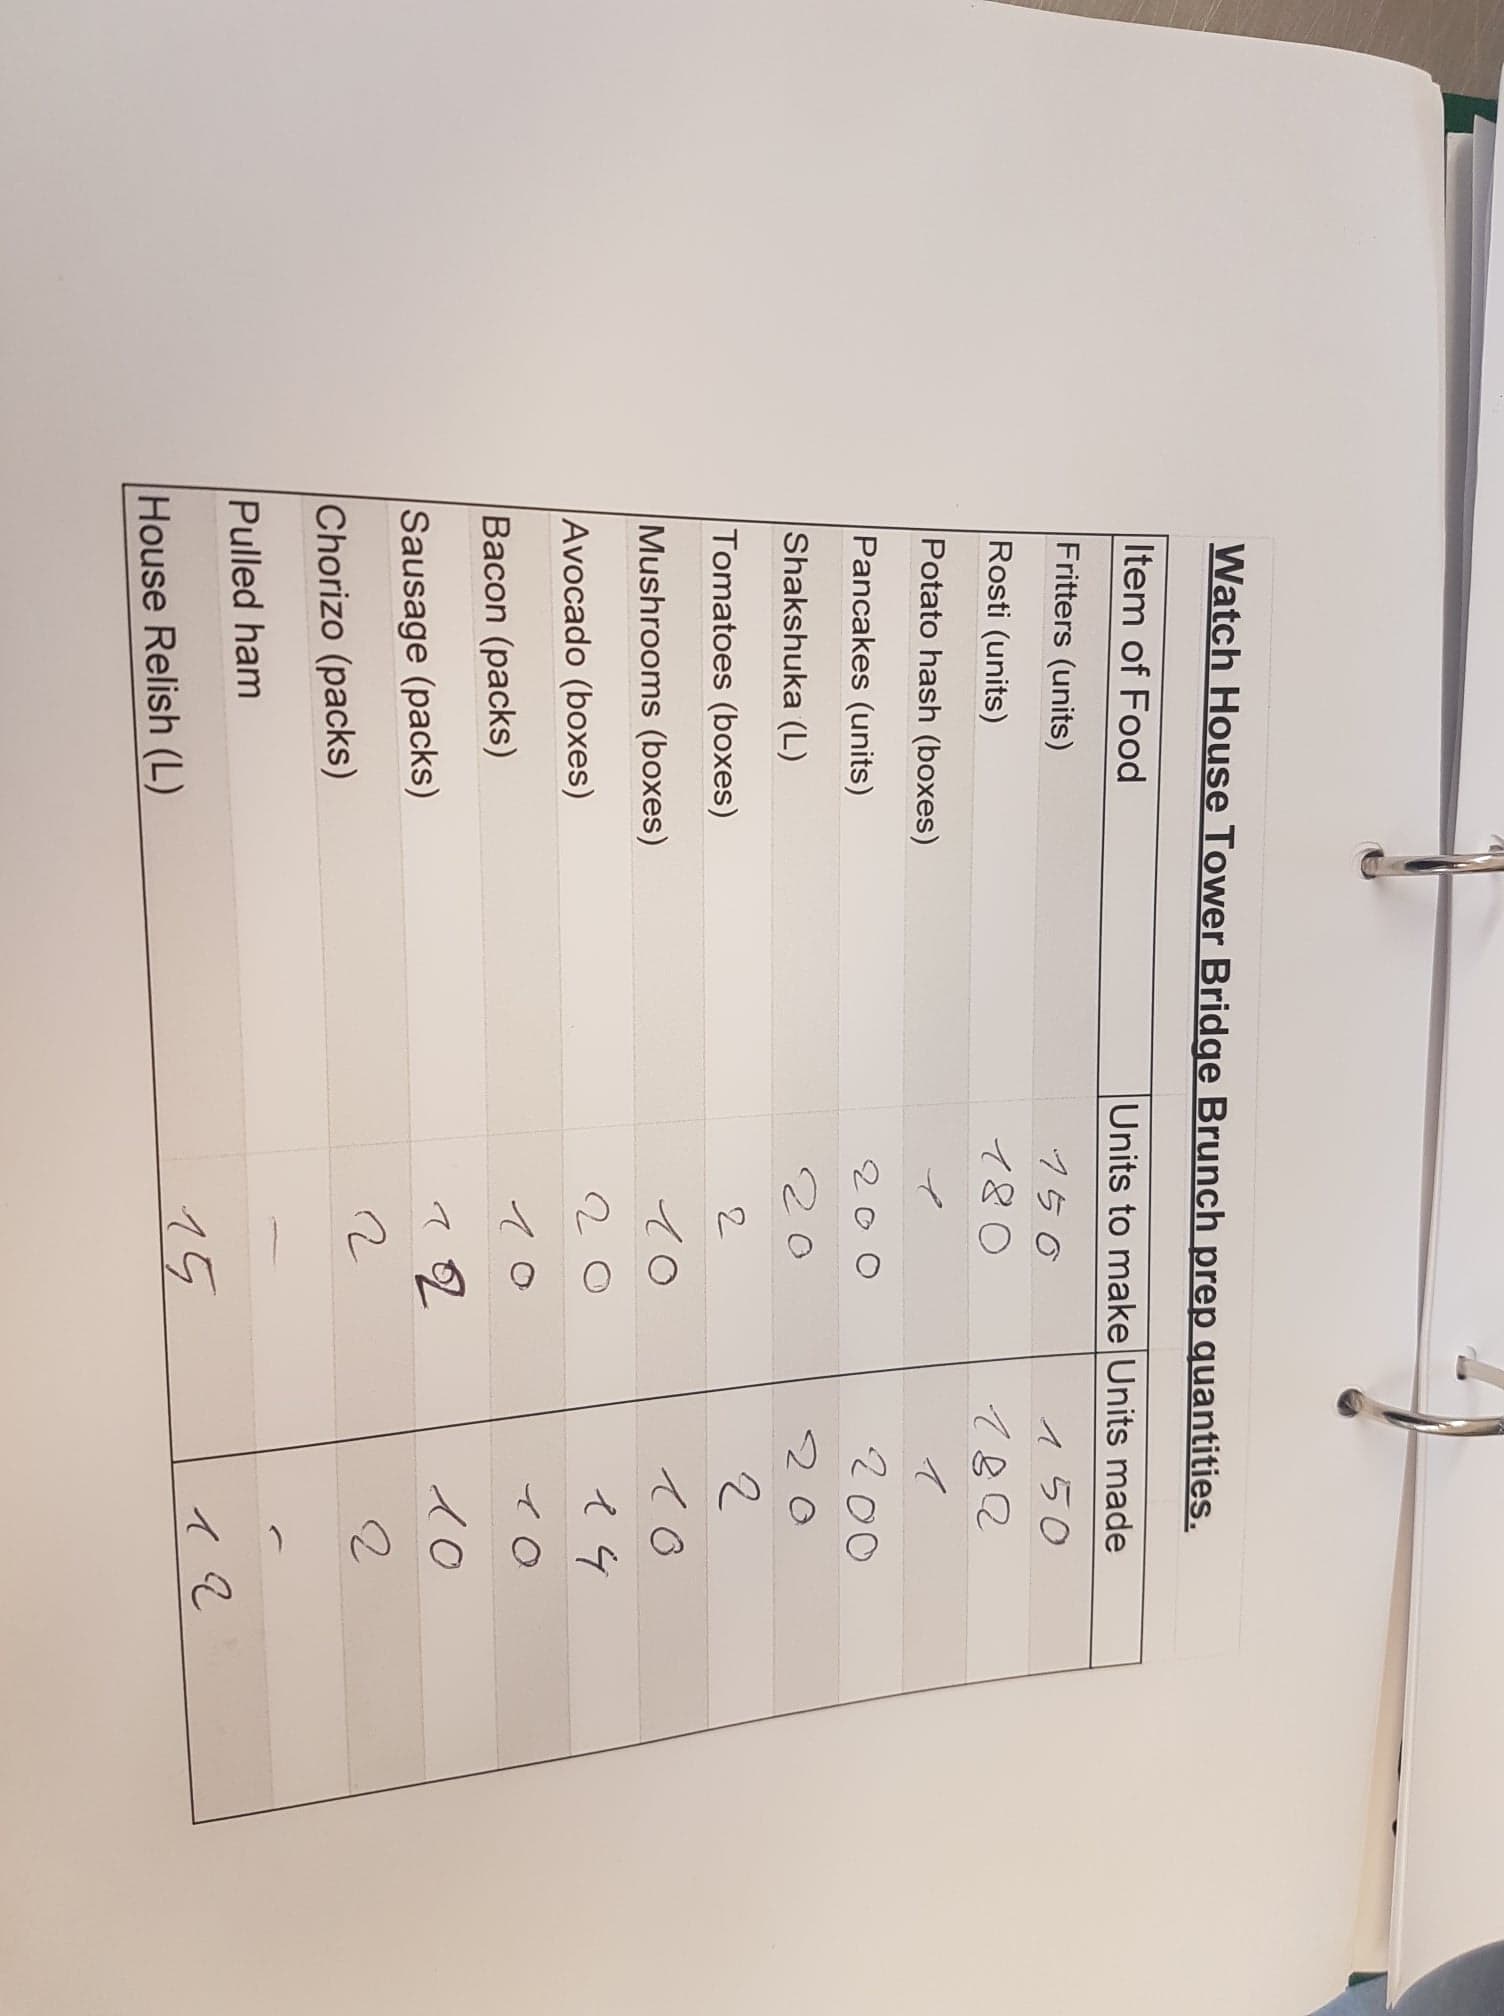 Watch House Tower Bridge Brunch prep quantities.
Item of Food Units to make Units made
Fritters (units) 150 150
Rosti (units) 180 182
Potato hash (boxes) 1 1
Pancakes (units) 200 200
Shakshuka (L) 20 20
Tomatoes (boxes) 2 2
Mushrooms (boxes) 10 10
Avocado (boxes) 20 14
Bacon (packs) 10 10
Sausage (packs) 12 10
Chorizo (packs) 2 2
Pulled ham - -
House Relish (L) 15 12